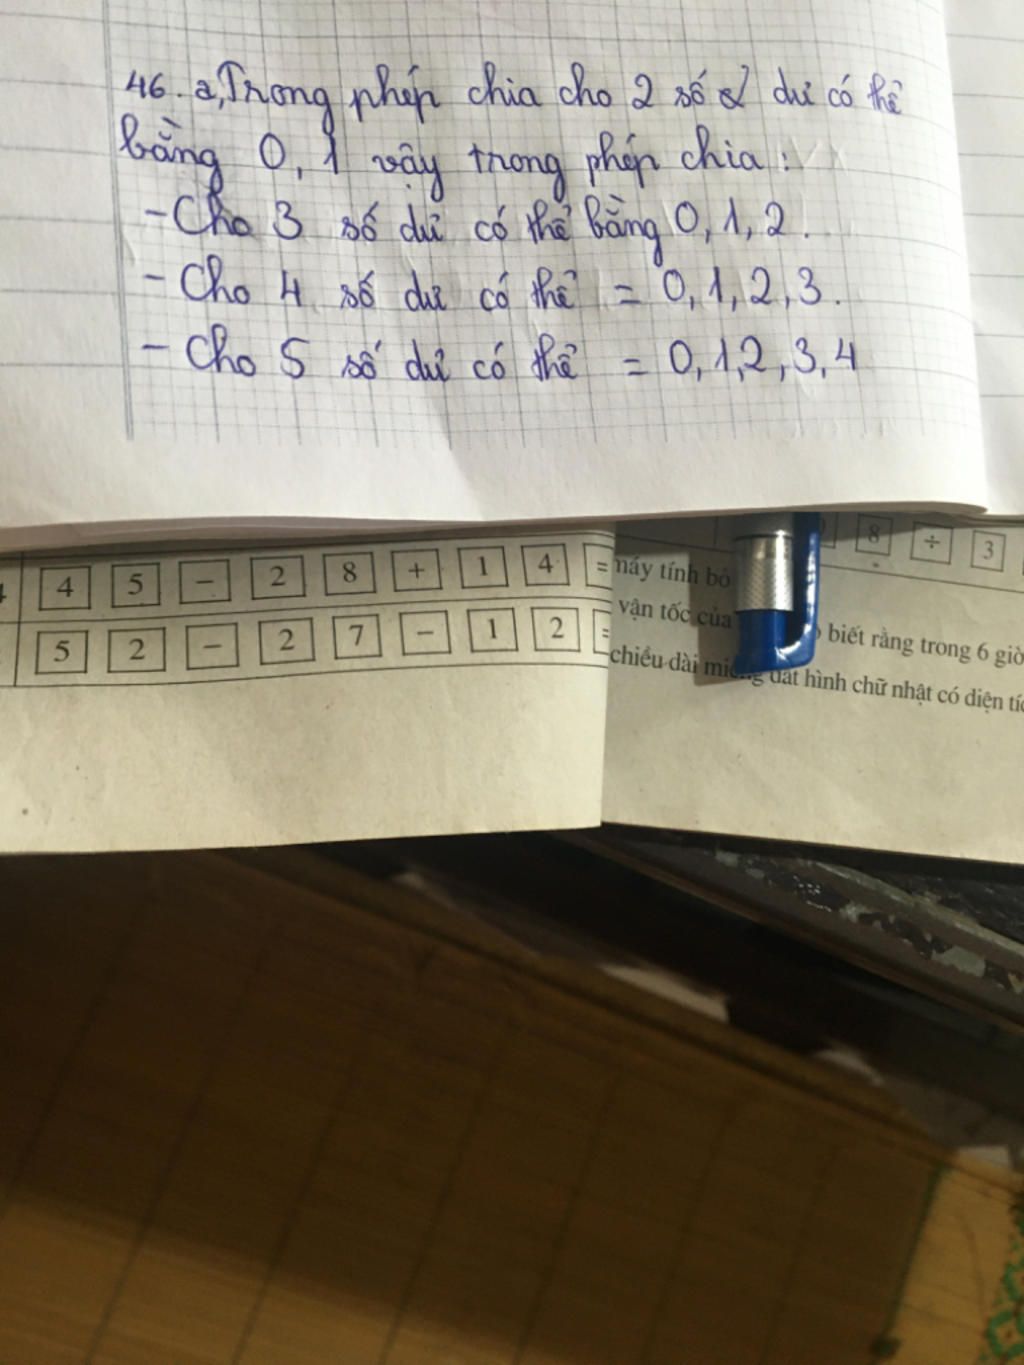 46. a, Trong phép chia cho 2 số dư có thể
bằng 0, 1 vậy trong phép chia:
- Cho 3 số dư có thể bằng 0, 1, 2.
- Cho 4 số dư có thể = 0, 1, 2, 3.
- Cho 5 số dư có thể = 0, 1, 2, 3, 4
4 5 - 2 8 + 1 4 =
5 2 - 2 7 - 1 2 =
8 ÷ 3
máy tính bỏ
vận tốc của biết rằng trong 6 giờ
chiều dài miếng đất hình chữ nhật có diện